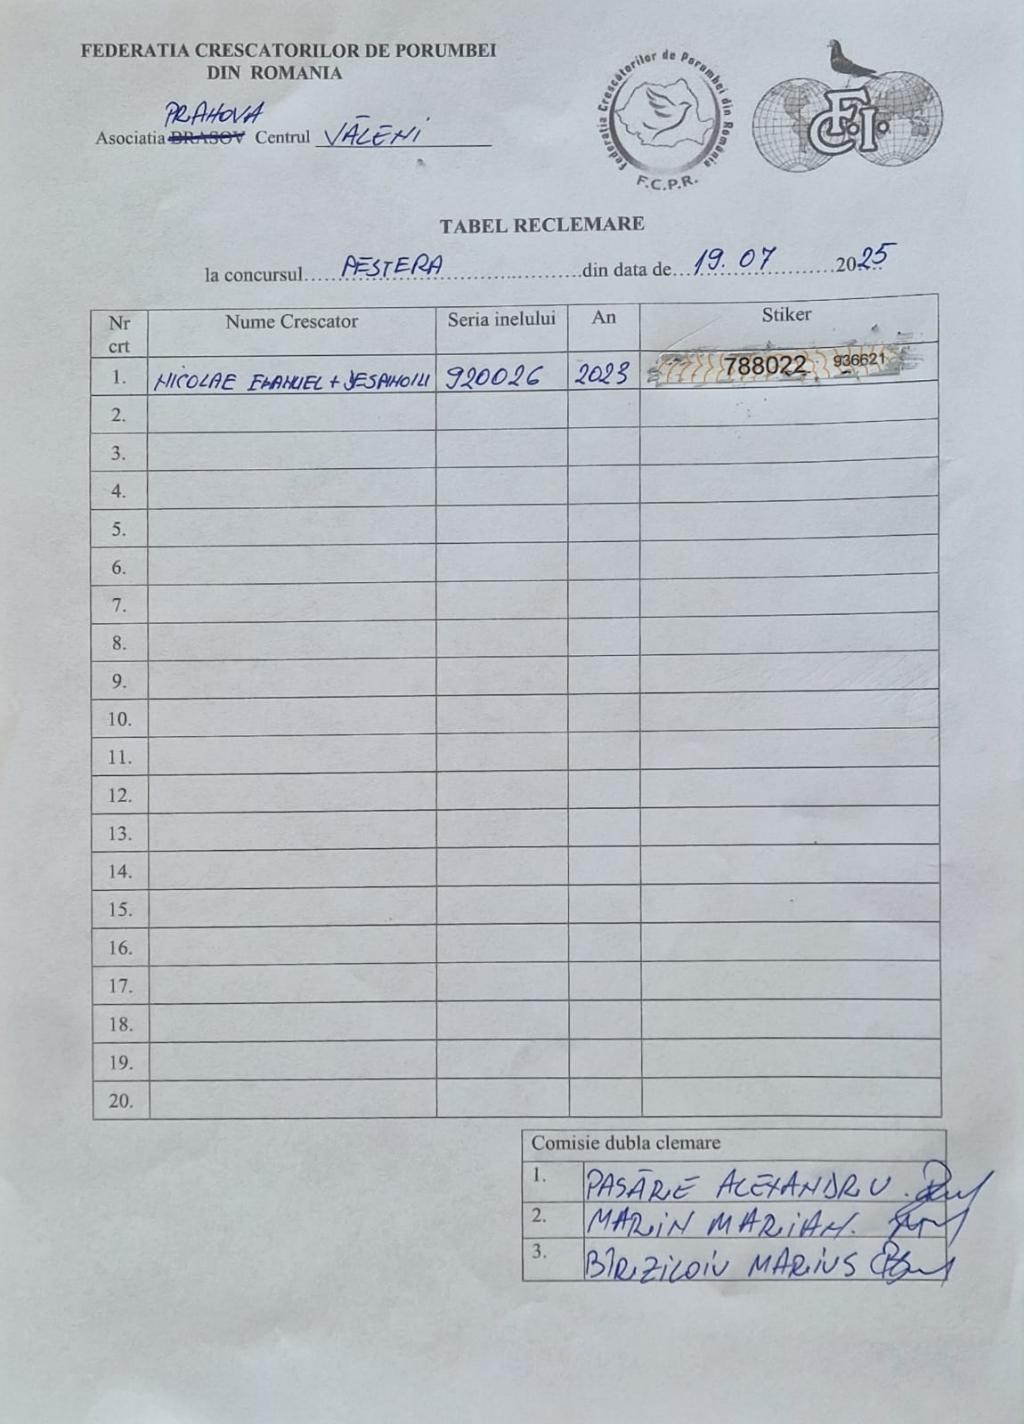 FEDERATIA CRESCATORILOR DE PORUMBEI
DIN ROMANIA
Federatia Crescătorilor de Porumbei din România
F.C.P.R.
FCI
PRAHOVA
Asociatia BRASOV Centrul VĂLENI
TABEL RECLEMARE
la concursul.... PESTERA ....din data de... 19.07 ....2025
Nr crt Nume Crescator Seria inelului An Stiker
1. NICOLAE EMANUEL + 920026 2023 788022 936621
2.
3.
4.
5.
6.
7.
8.
9.
10.
11.
12.
13.
14.
15.
16.
17.
18.
19.
20.
Comisie dubla clemare
1. PASĂRE ALEXANDRU.
2. MARIN MARIAN.
3. BÎRZILOIU MARIUS